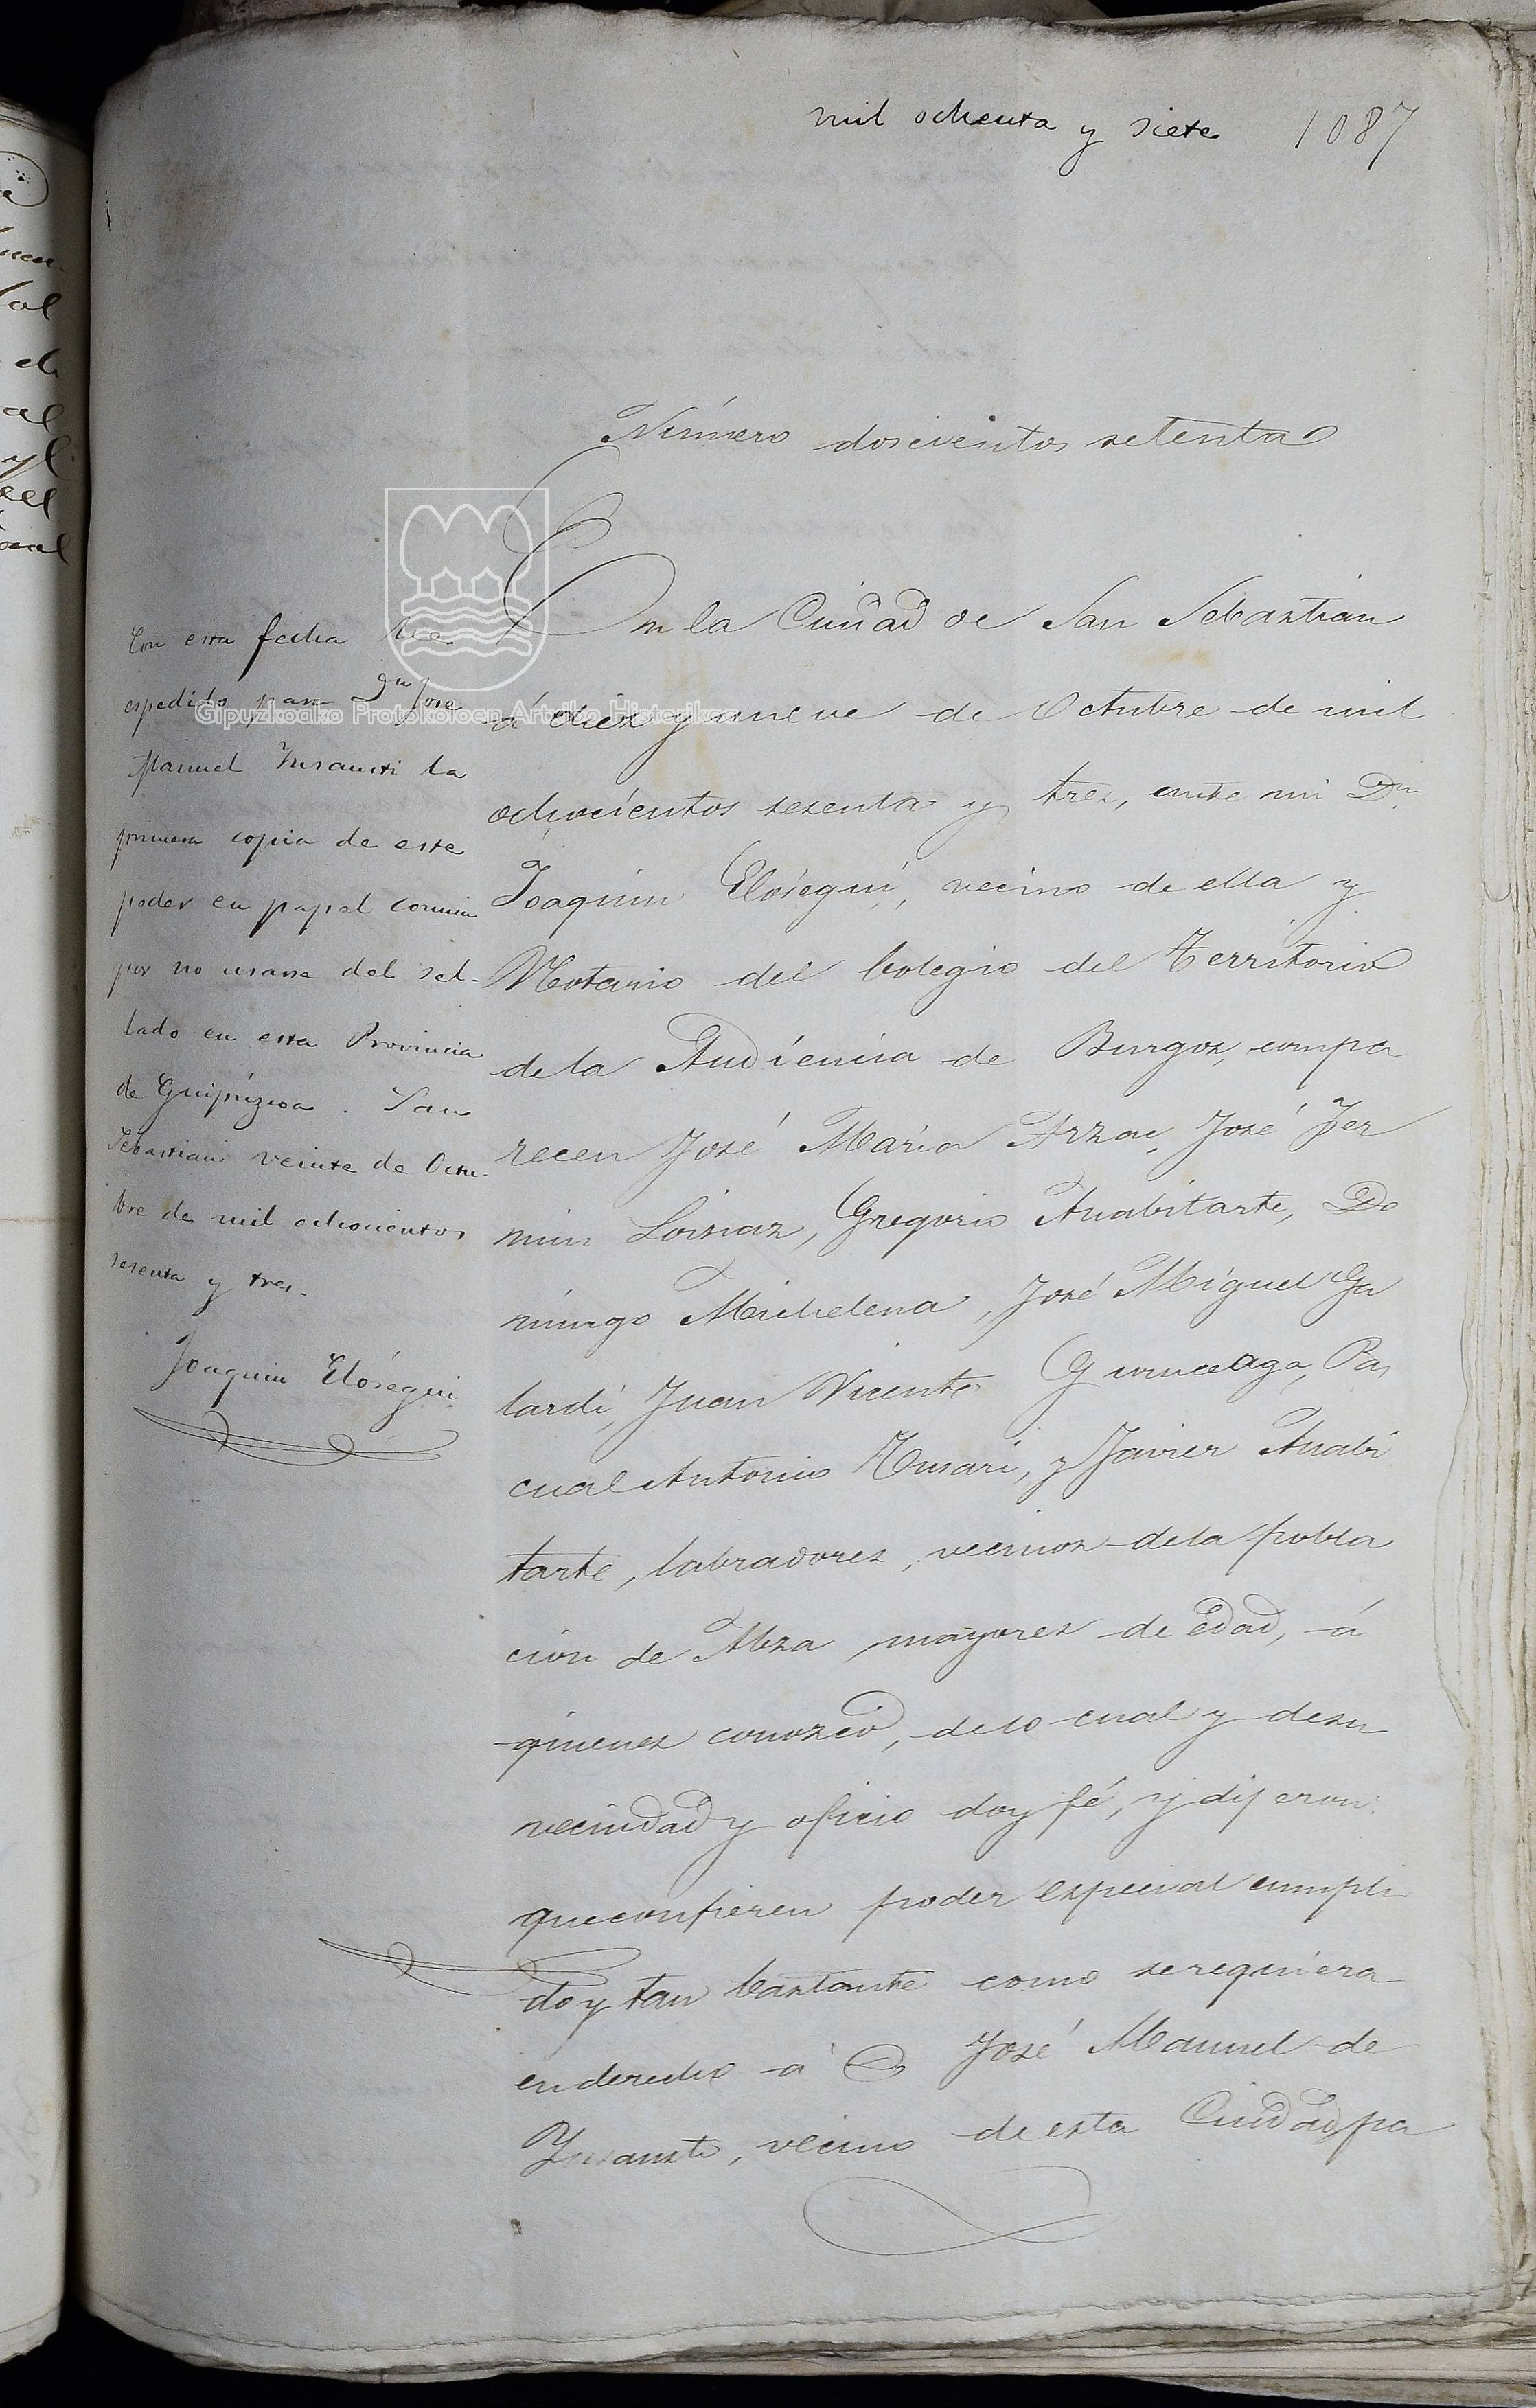 mil ochenta y siete 1087
Número doscientos setenta
En la Ciudad de San Sebastian
á diez y nueve de Octubre de mil
ochocientos sesenta y tres, ante mi Dn
Joaquin Elósegui, vecino de ella y
Notario del Colegio del Territorio
de la Audiencia de Burgos, compa
recen José Maria Arzac, José Fer
min Loinaz, Gregorio Anabitarte, Do
mingo Michelena, José Miguel Ga
lardi, Juan Vicente Guruceaga, Pas
cual Antonio Casares, y Javier Anabi
tarte, labradores, vecinos de la pobla
cion de Alza, mayores de edad, á
quienes conozco, de lo cual y de su
vecindad y oficio doy fé, y dijeron:
que confieren poder especial cumpli
do y tan bastante como se requiera
en derecho á D José Manuel de
Ynsausti, vecino de esta Ciudad, pa
Con esta fecha he
espedido para Dn Jose
Manuel Ynsausti la
primera copia de este
poder en papel comun
por no usarse del sel-
lado en esta Provincia
de Guipúzcoa. San
Sebastian veinte de Octu-
bre de mil ochocientos
sesenta y tres.
Joaquin Elósegui
Gipuzkoako Protokoloen Artxibo Historikoa